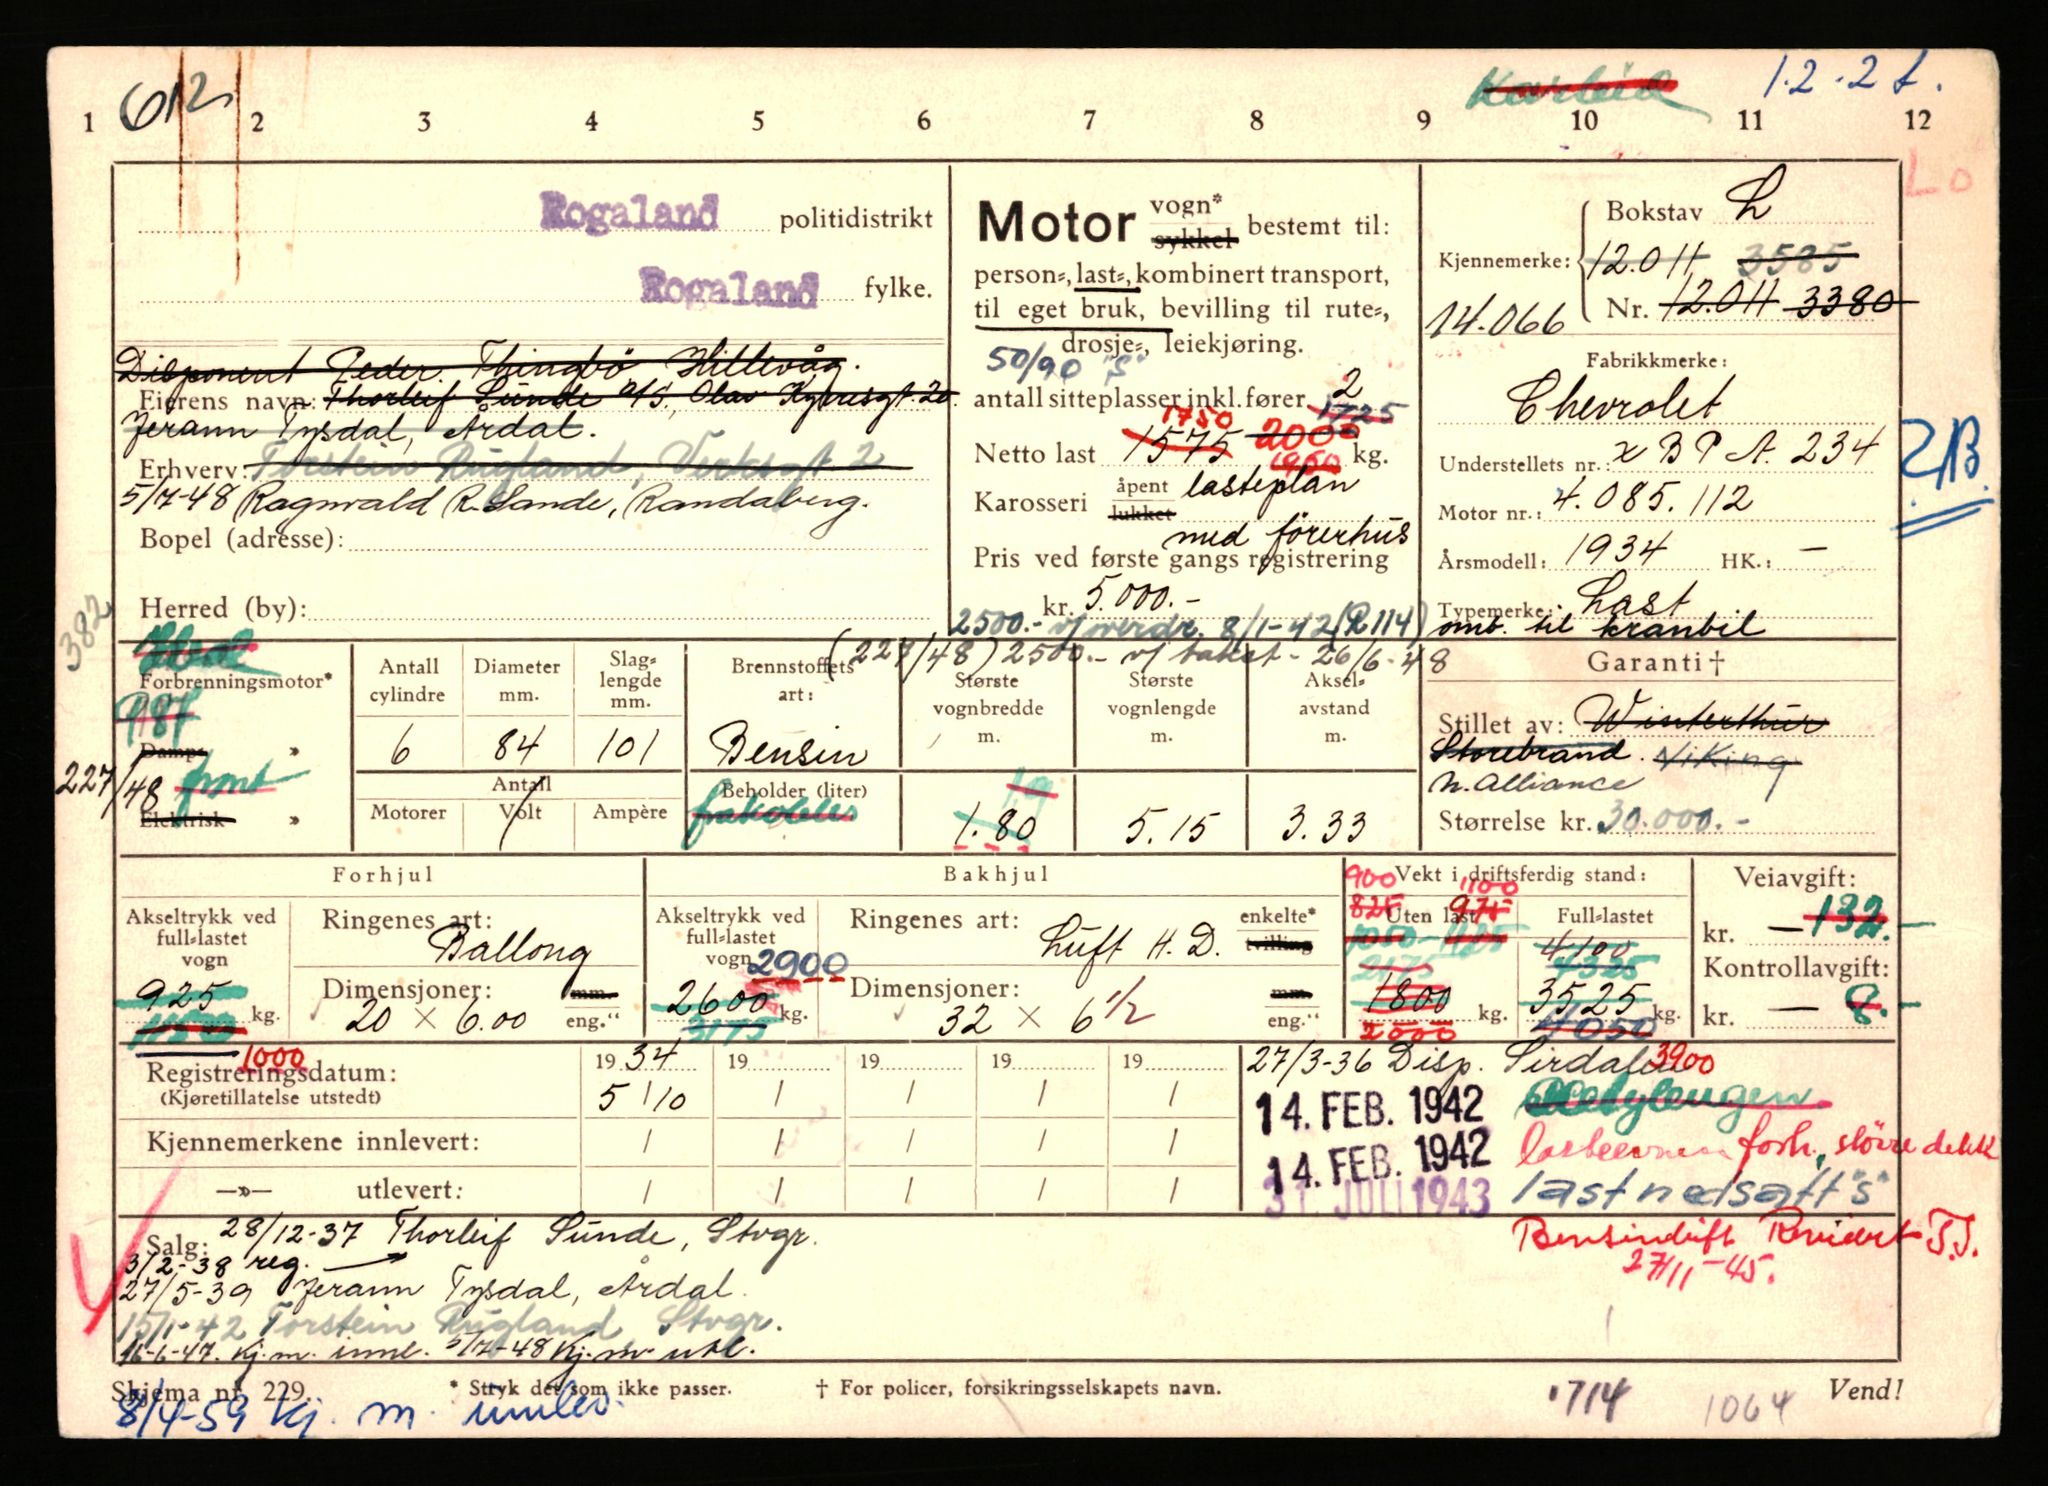 612 1.2-2
1 2 3 4 5 6 7 8 9 10 11 12
Lo
Rogaland politidistrikt
Rogaland fylke.
Disponent Peder Thingbö Hillevåg.
Eierens navn: Thorleif Sunde A/S, Olav Kyrresgt. 20
Jerann Tysdal, Årdal.
Erhverv: Torstein Rugland, Verksgt 2
5/7-48 Ragnvald R. Sande, Randaberg.
Bopel (adresse):
Herred (by):
382
Motor vogn* sykkel bestemt til:
person-, last-, kombinert transport,
til eget bruk, bevilling til rute-,
drosje-, leiekjøring.
50/90 "S"
antall sitteplasser inkl. fører 2
1750 1725
Netto last 1575 2000 kg.
1950
Karosseri åpent lukket lasteplan
med förerhus
Pris ved første gangs registrering
kr. 5.000.-
2500.- v/overdr. 8/1-42 (R 114)
(227/48) 2500.- v/takst - 26/6-48
Bokstav L
Kjennemerke: 12.011 3585
14.066 Nr. 12.011 3380
Fabrikkmerke:
Chevrolet
Understellets nr.: x B P A. 234
Motor nr.: 4.085.112
Årsmodell: 1934 HK.: —
Typemerke: Last
omb. til kranbil
2B
Forbrenningsmotor*
P187
Damp- »
227/48
Elektrisk »
Antall cylindre 6
Diameter mm. 84
Slag-lengde mm. 101
Antall
Motorer Volt Ampère
Brennstoffets art: Bensin
Beholder (liter)
Største vognbredde m. 1.9 1.80
Største vognlengde m. 5.15
Aksel-avstand m. 3.33
Garanti †
Stillet av: Winterthur
Storebrand. Viking
N. Alliance
Størrelse kr. 30.000.-
Forhjul
Akseltrykk ved full-lastet vogn
925 kg.
1150
1000
Ringenes art: Ballong
Dimensjoner: 20 × 6.00 mm. eng."
Bakhjul
Akseltrykk ved full-lastet vogn 2900
2600 kg.
3175
Ringenes art: Luft H. D. enkelte* tvilling
Dimensjoner: 32 × 6 1/2 mm. eng."
Vekt i driftsferdig stand:
900 1100
825 975
Uten last
1050-1125
2175
1800 kg.
2000
Full-lastet
4100
4325
3525 kg.
4050
3900
Veiavgift:
kr. —132.—
Kontrollavgift:
kr. — 8.—
Registreringsdatum: 1934 19 19 19 19
(Kjøretillatelse utstedt) 5/10 / / / /
Kjennemerkene innlevert: / / / / /
—»— utlevert: / / / / /
27/3-36 Disp. Sirdalen
14. FEB. 1942 Acetylengen.
14. FEB. 1942 lasteevnen forh., större dekk
31. JULI 1943 last nedsatt "S"
Bensindrift Revidert T.T.
27/11-45.
Salg: 28/12-37 Thorleif Sunde, Stvgr.
3/2-38 reg.
27/5-39 Jerann Tysdal, Årdal.
15/1-42 Torstein Rugland, Stvgr.
16-6-47. Kj.m. innl. 5/7-48 Kj.m. utl.
Skjema nr. 229. * Stryk det som ikke passer. † For policer, forsikringsselskapets navn. 1714 1064 Vend!
8/4-59 Kj. m. innlev.